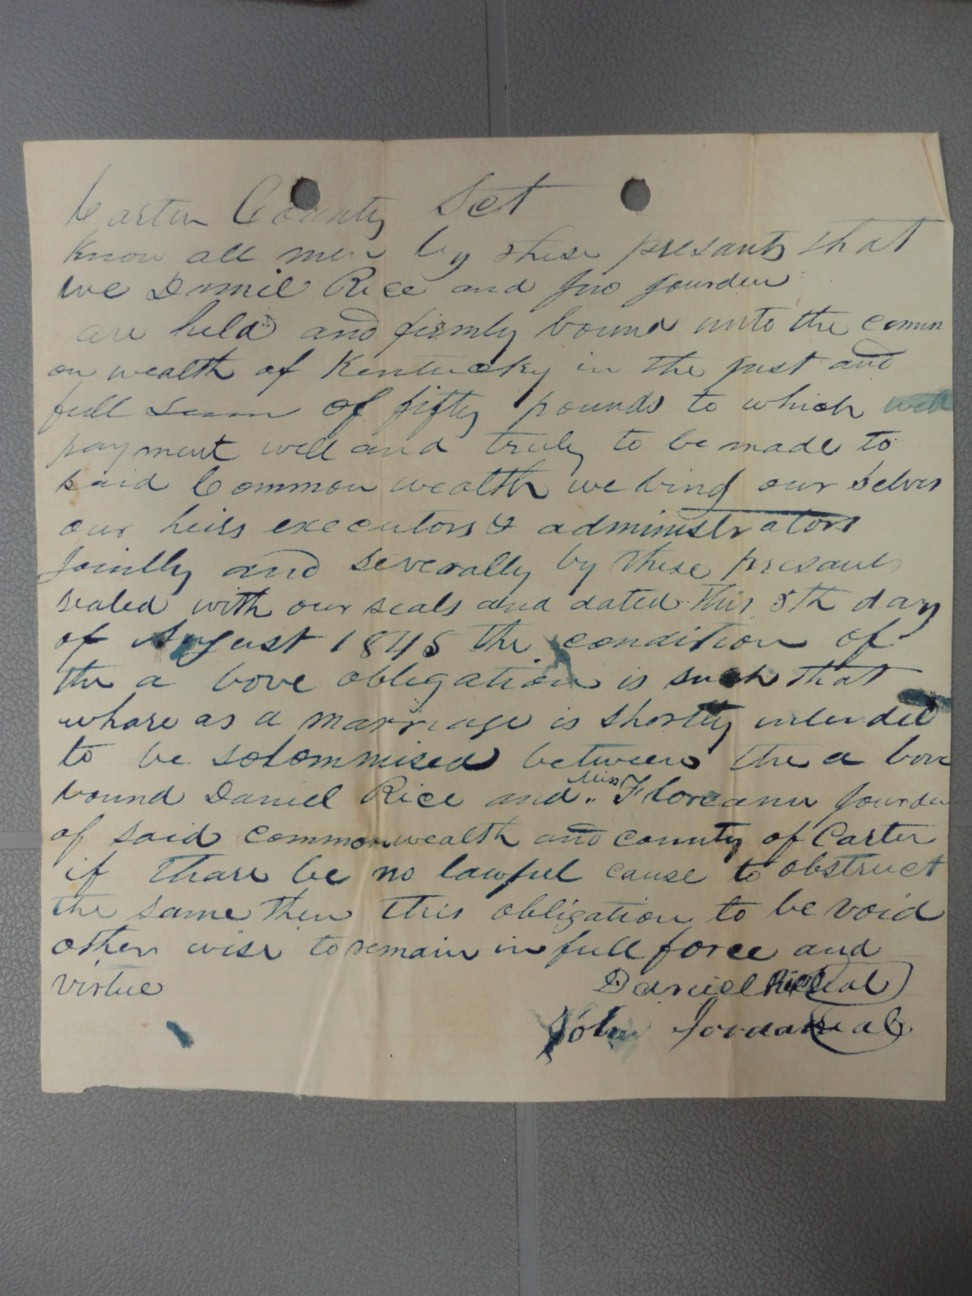 Carter County Sct
Know all men by these presants that
we Daniel Rice and Jno Jourden
are held and firmly bound unto the comm
on wealth of Kentucky in the just and
full sum of fifty pounds to which well
payment well and truly to be made to
said Common wealth we bind our selves
our heirs executors & administrators
Jointly and severally by these presants
sealed with our seals and dated this 5th day
of August 1845 the condition of
the a bove obligation is such that
whare as a marriage is shortly intended
to be solommised between the a bove
bound Daniel Rice and Miss Floreann Jourden
of said commonwealth and county of Carter
if thare be no lawful cause to obstruct
the same then this obligation to be void
other wise to remain in full force and
virtue Daniel Rice Seal
John Jordan Seal